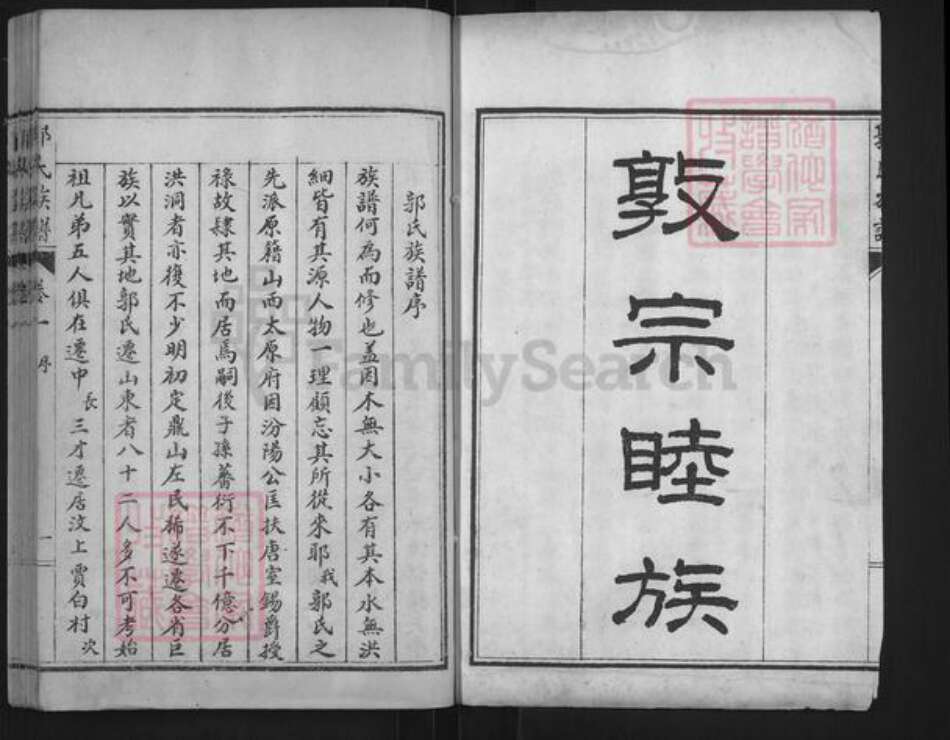 敦宗睦族
郭氏族譜序
族譜何為而修也蓋因木無大小各有其本水無洪
細皆有其源人物一理顧忘其所從來耶我郭氏之
先派原籍山西太原府因汾陽公匡扶唐室錫爵授
祿故隸其地而居焉嗣後子孫蕃衍不下千億分居
洪洞者亦復不少明初定鼎山左民稀遂遷各省巨
族以實其地郭氏遷山東者八十二人多不可考始
祖兄弟五人俱在遷中長三才遷居汶上賈白村次
郭氏族譜 卷一 序 一
FamilySearch